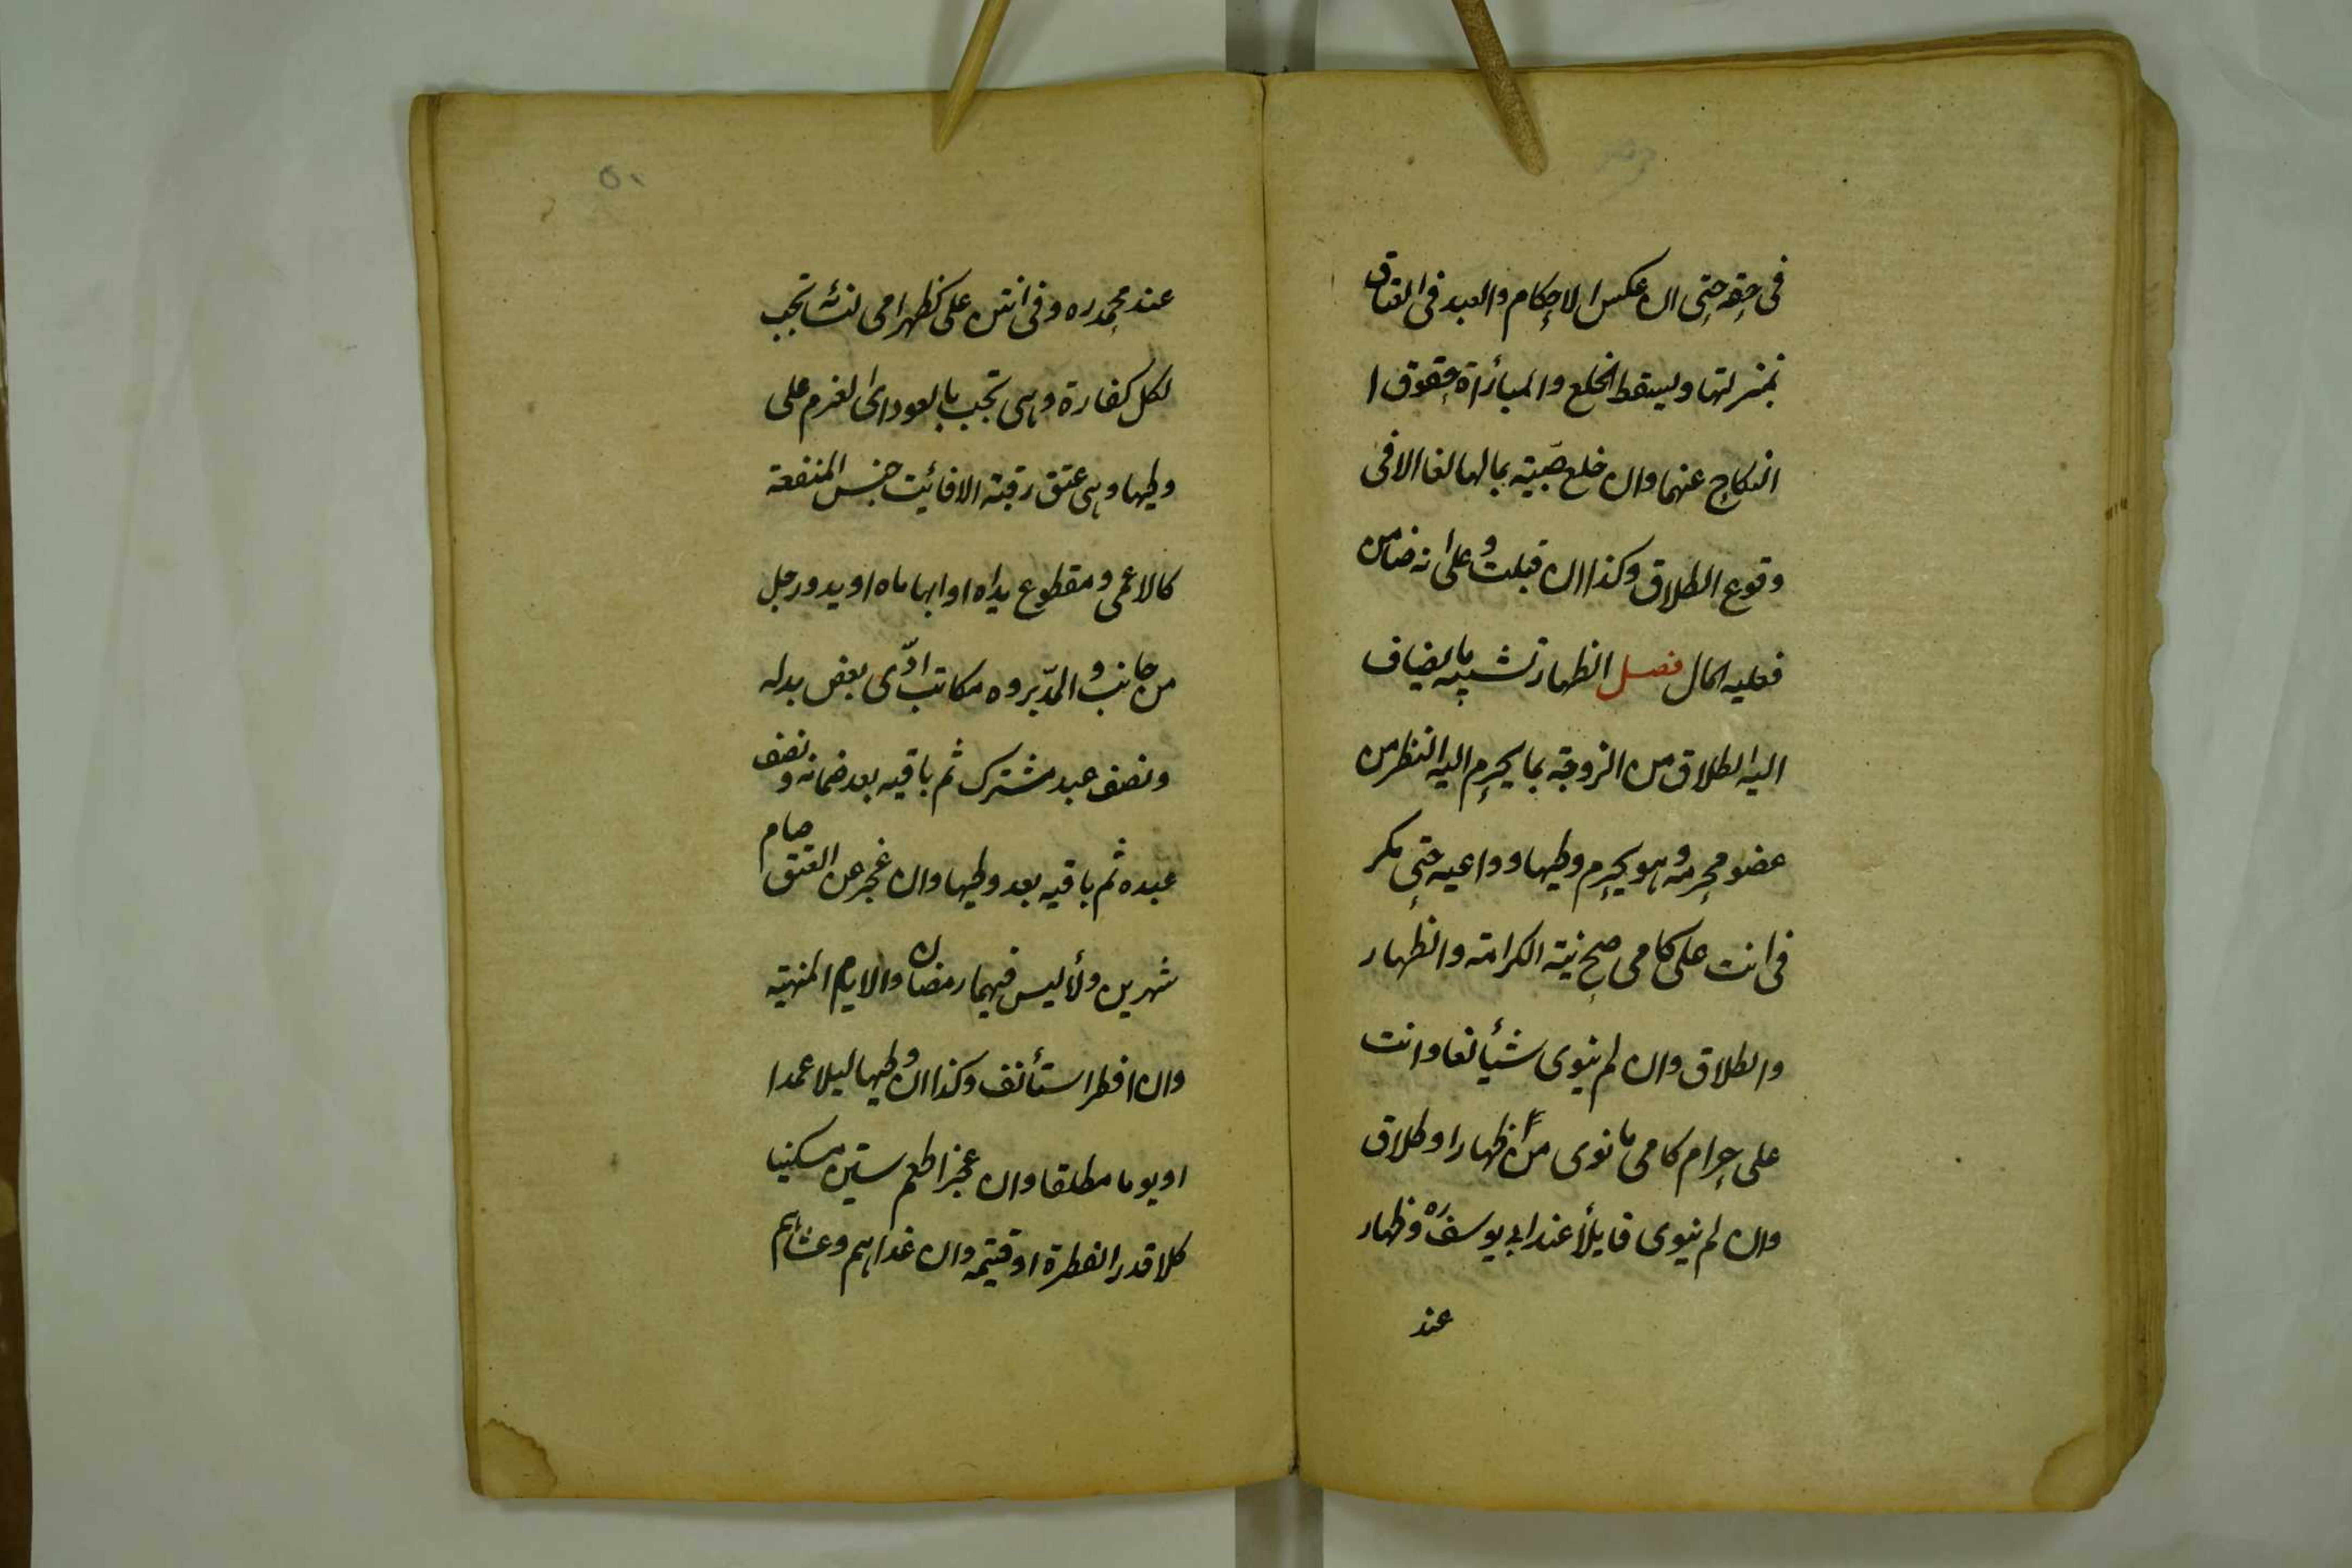 فى حقه حتى ان عكس الاحكام والعبد فى العتاق
بمنزلتها ويسقط الخلع والمبأراة حقوق ا
النكاح عنهما وان خلع صبيته بمالها لغا الا فى
وقوع الطلاق وكذا ان قبلت و على انه ضامن
فعليه المال فصل الظهار تشبيه ما يضاف
اليه الطلاق من الزوجة بما يحرم اليه النظر من
عضو محرمه و هو يحرم وطيها ودواعيه حتى يكفر
فى انت على كامى صح نية الكرامة والظهار
والطلاق وان لم ينوى شيأ لغا وانت
على حرام كامى ما نوى من ظهارا وطلاق
وان لم ينوى فايلأ عند ابى يوسف ره وظهار
عند
٥٠
عند محمد ره وفى انتن على كظهر امى لنسائه تجب
لكل كفارة وهى تجب بالعود اى العزم على
وطيها وهى عتق رقبة الا فائت جنس المنفعة
كالاعمى و مقطوع يداه او ابهاماه او يد ورجل
من جانب و المدبر وه مكاتب ادّى بعض بدله
ونصف عبد مشترك ثم باقيه بعد ضمانه و نصف
عبده ثم باقيه بعد وطيها وان عجز عن العتق صام
شهرين ولأ ليس فيهما رمضان والايام المنهية
وان افطر استأنف وكذا ان وطيها ليلا عمدا
او يوما مطلقا وان عجز اطعم ستين مسكينا
كلا قدر الفطرة او قيمته وان غداهم وعشاهم